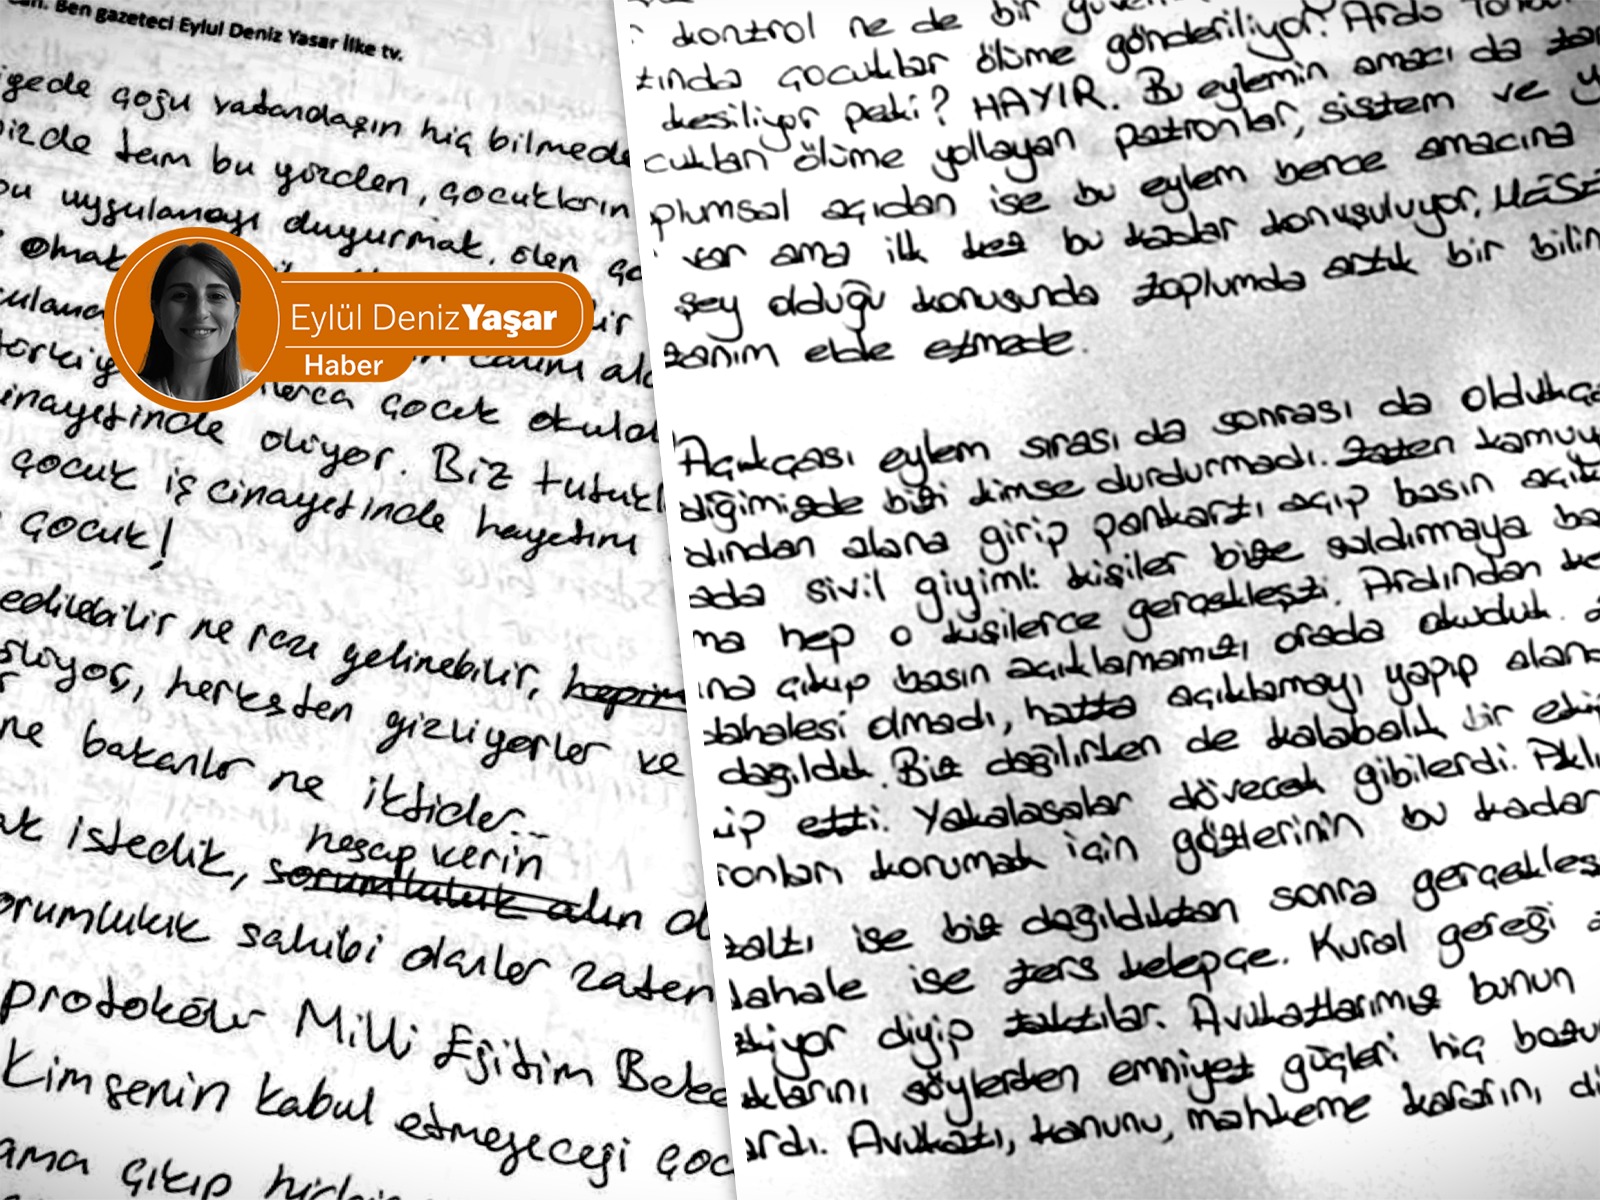 Ben gazeteci Eylul Deniz Yaşar İlke tv.
çoğu vatandaşın hiç bilmede
bizde tam bu yüzden, çocukların
bu uygulamayı duyurmak, ölen ço
olmak
Eylül Deniz Yaşar
Haber
canını ala
çocuk okulda
cinayetinde ölüyor. Biz tutukl
çocuk iş cinayetinde hayatını
çocuk!
edilebilir ne razı gelinebilir,
herkesten gizliyorlar ve
ne bakanlar ne iktidar...
hesap verin
istedik, sorumluluk alın
sorumluluk sahibi olanlar zaten
protokoller Milli Eğitim
Kimsenin kabul etmeyeceği çoc
ama çıkıp
kontrol ne de bir güven
çocuklar ölüme gönderiliyor? Ardı
kesiliyor peki? HAYIR. Bu eylemin amacı da
cukları ölüme yollayan patronlar, sistem ve
plumsal açıdan ise bu eylem bence amacına
var ama ilk kez bu kadar konuşuluyor, MESE
şey olduğu konusunda toplumda artık bir bilin
zanım elde etmede.
Açıkçası eylem sırası da sonrası da oldukça
diğimizde bizi kimse durdurmadı. Zaten kamuy
dından alana girip pankartı açıp basın açık
ada sivil giyimli kişiler bize saldırmaya ba
ma hep o kişilerce gerçekleşti. Ardından
ına çıkıp basın açıklamamızı orada okuduk.
dahalesi olmadı, hatta açıklamayı yapıp alan
dağıldık. Biz dağılırken de kalabalık bir ekip
ip etti. Yakalasalar dövecek gibilerdi.
ronları korumak için gözlerinin bu kadar
zaltı ise biz dağıldıktan sonra gerçekleş
dahale ise ters kelepçe. Kural gereği
diyip taktılar. Avukatlarımız bunun
söylerken emniyet güçleri hiç
ardı. Avukatı, kanunu, mahkeme kararını,